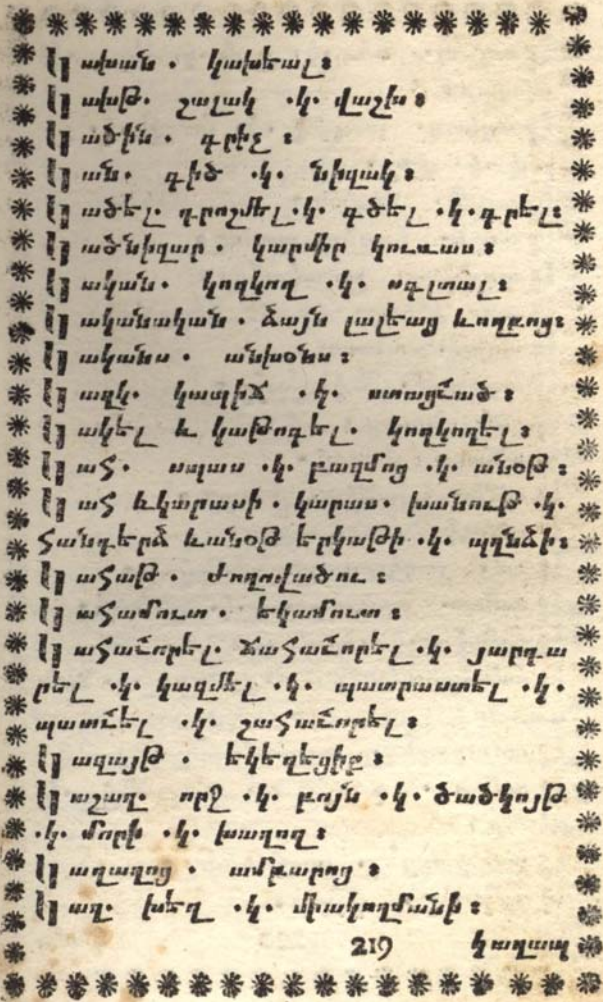 Կախան . կախեալ ։
Կախթ. շալակ .կ. վաշխ ։
Կածին . գրիչ ։
Կան. գիծ .կ. նիզակ ։
Կածել. դրոշմել .կ. գծել .կ. գրել ։
Կածնիզար . կարմիր
Կական. կողկող .կ.
Կականական . ձայն լալեաց և ողբոց ։
Կականս .
կապիճ .կ. ստացուած ։
Կակել և կաթոգել. կողկողել ։
Կահ. սպաս .կ. բազմոց .կ. անօթ ։
Կահ և կարասի . կարաս. խանութ .կ.
հանդերձ և անօթ երկաթի .կ. պղնձի ։
Կահաթ . ժողովածու ։
Կահամուտ . եկամուտ ։
Կահաւորել. ճահաւորել .կ. յարդա
րել .կ. կազմել .կ. պատրաստել .կ.
պատուել .կ. շահաւորել ։
Կազայթ . եկեղեցիք ։
Կաշաղ. որջ .կ. բոյն .կ. ծածկոյթ
.կ. մարի .կ. խաղող ։
Կաղաղոց . ամբարոց ։
Կաղ. խեղ .կ. միակողմանի ։
219 Կաղապ